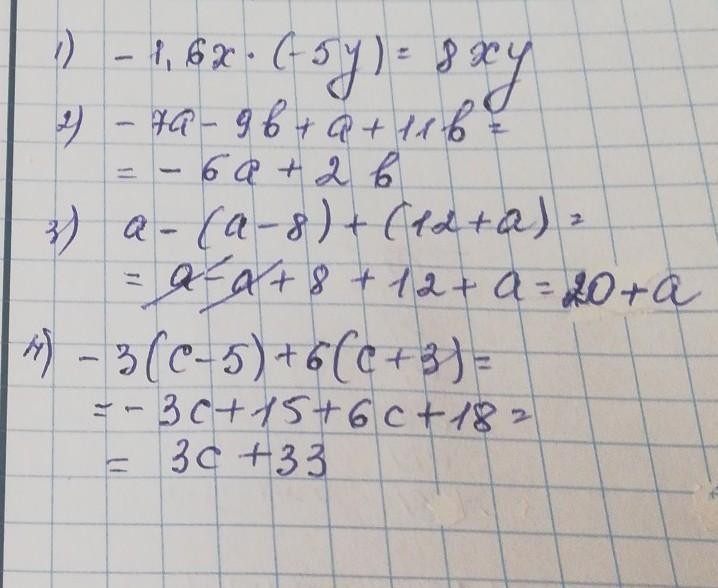 1) - 1,6x · (-5y) = 8xy
2) - 7a - 9b + a + 11b =
= - 6a + 2b
3) a - (a - 8) + (12 + a) =
= a - a + 8 + 12 + a = 20 + a
4) - 3(c - 5) + 6(c + 3) =
= - 3c + 15 + 6c + 18 =
= 3c + 33